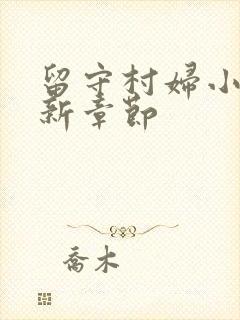 留守村婦小
新章節
喬木